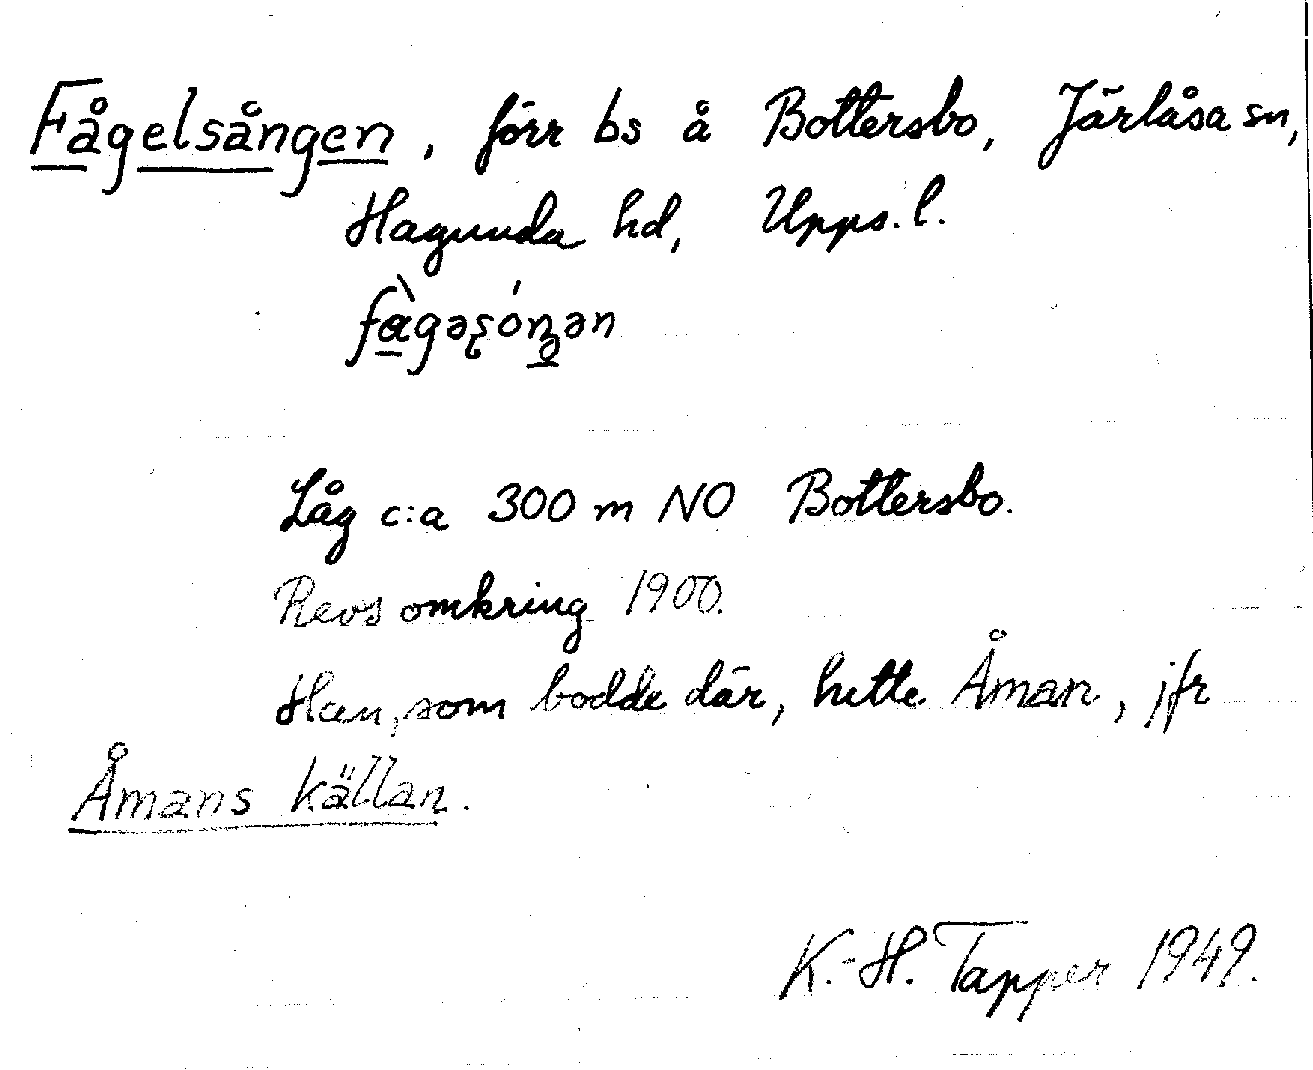 Fågelsången, förr bs å Bottersbo, Järlåsa sn,
Hagunda hd, Upps. l.
Låg c:a 300 m NO Bottersbo.
Revs omkring 1900.
Han, som bodde där, hette Åman, jfr
Åmans källan.
K.-H. Tapper 1949.